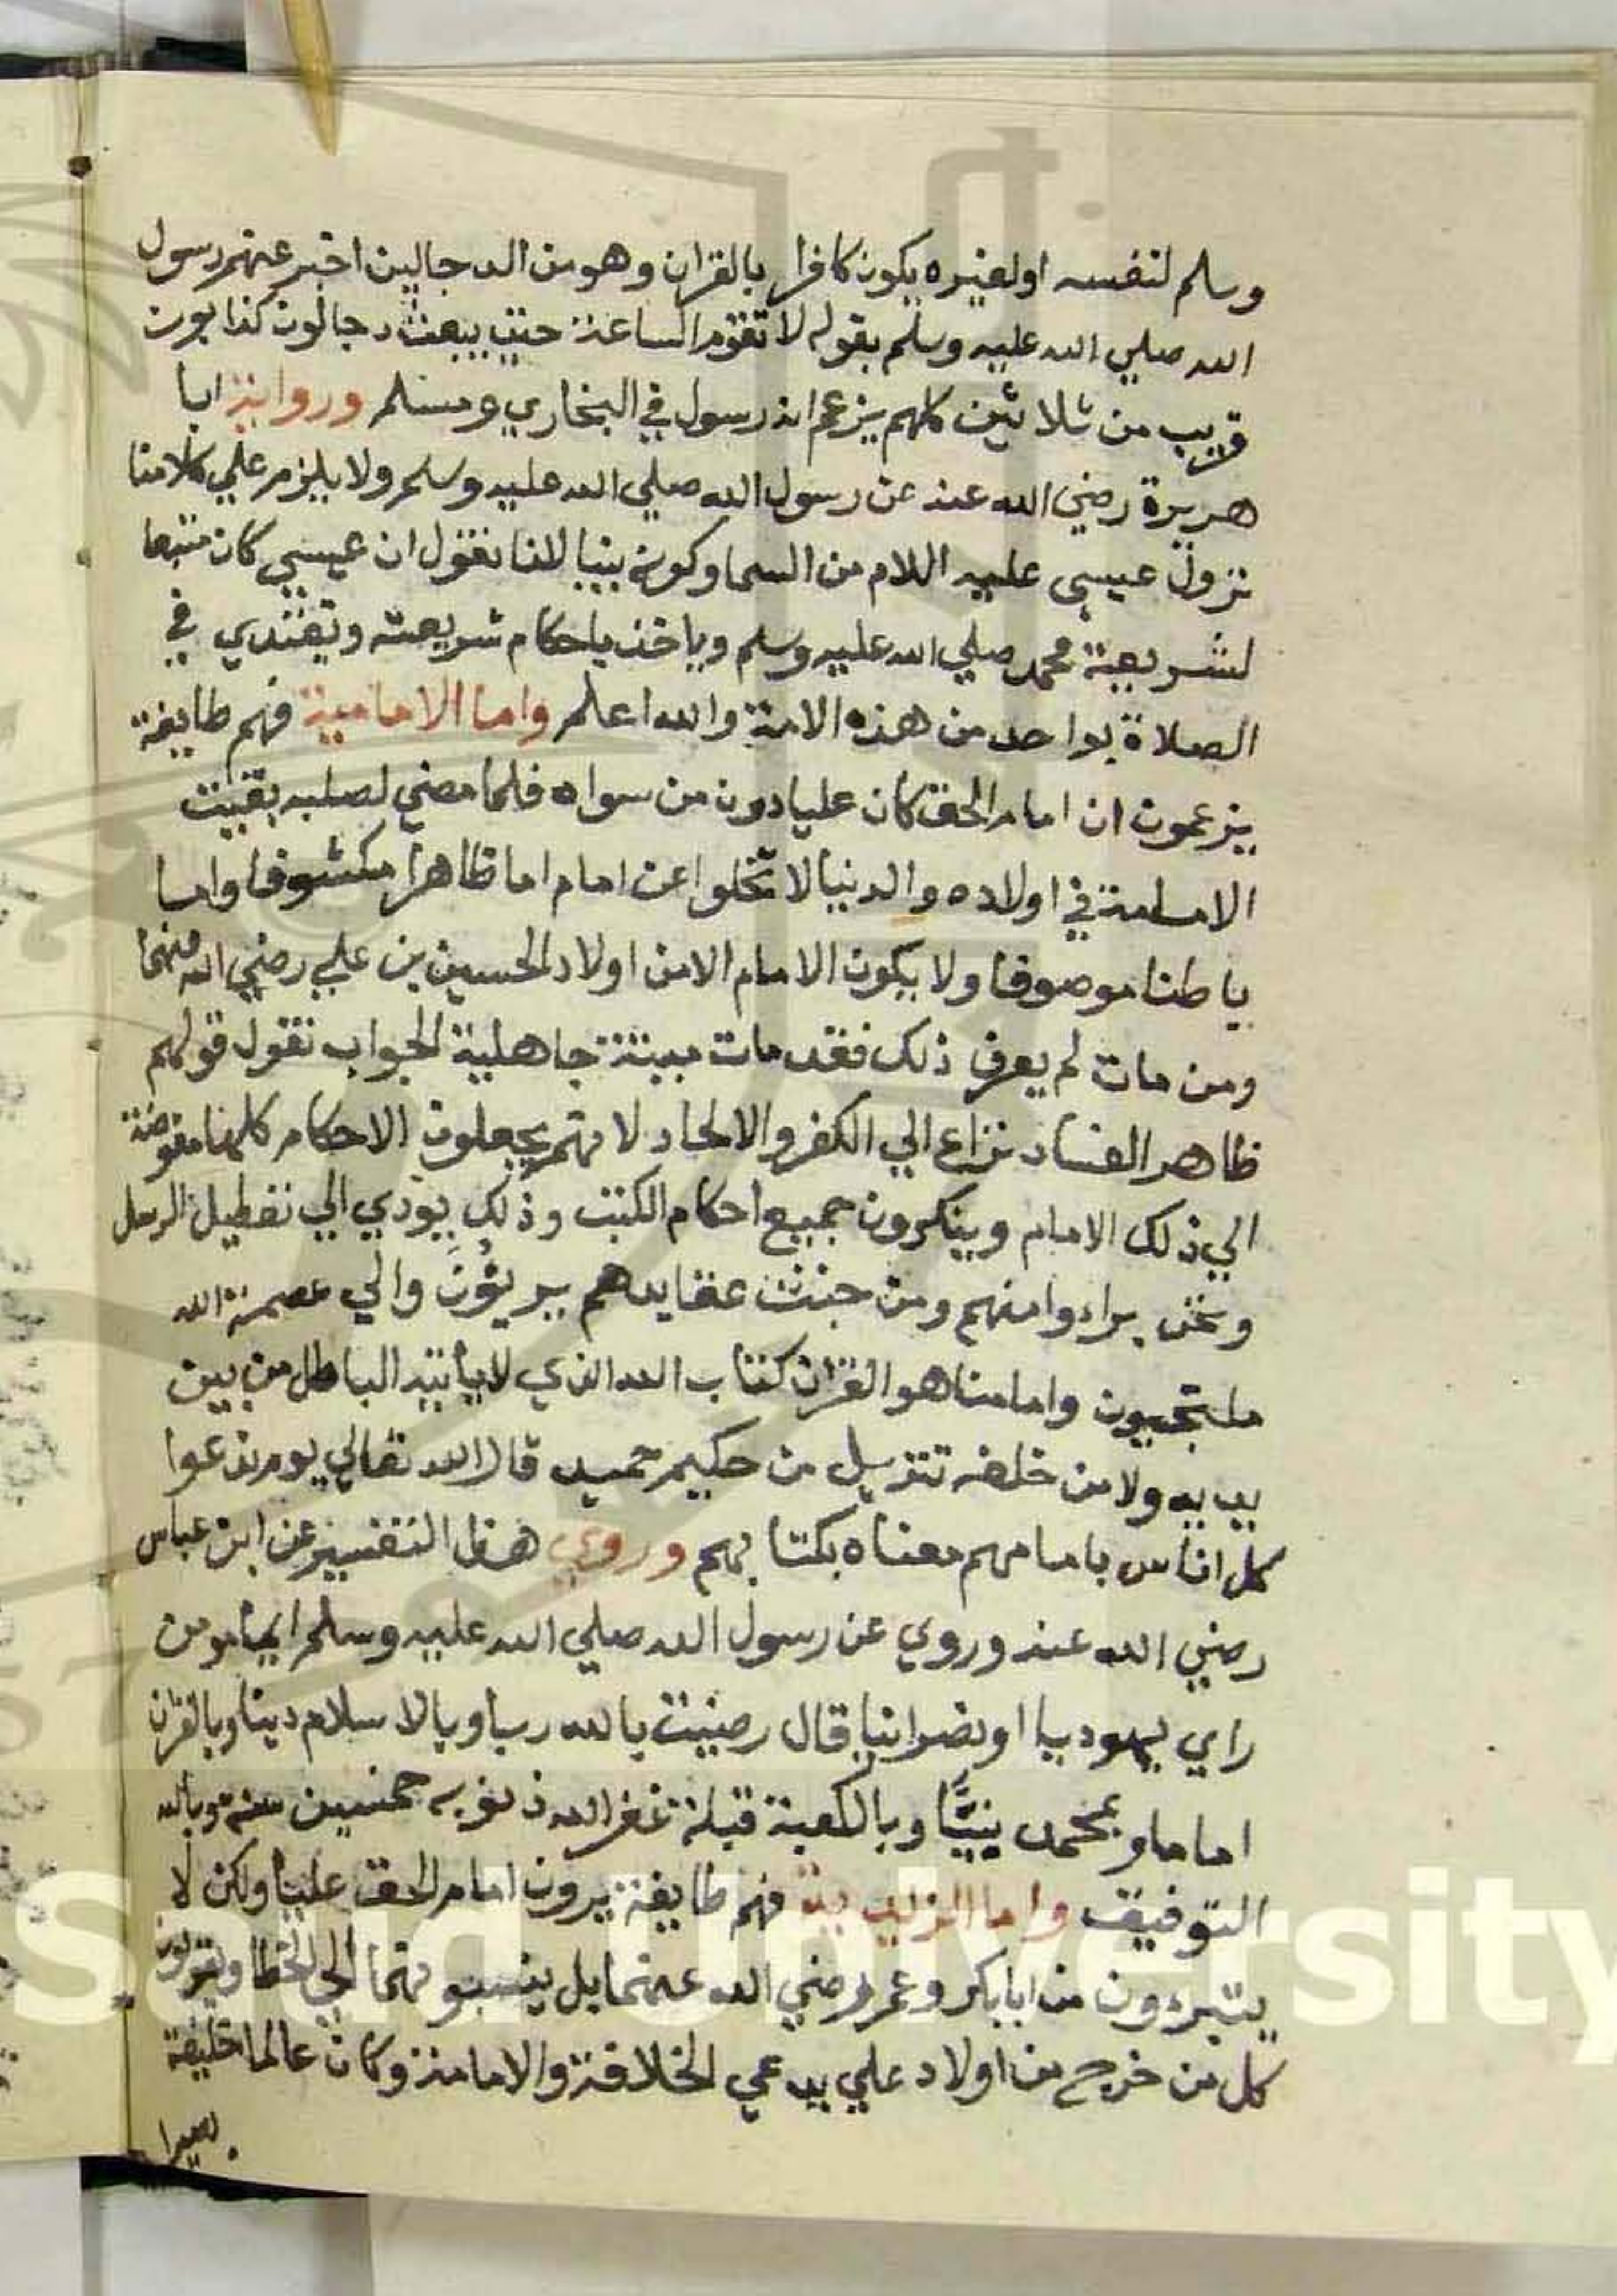 وسلم لنفسه او لغيره يكون كافرا بالقران وهو من الدجالين اخبر عنهم رسول
الله صلي الله عليه وسلم بقوله لا تقوم الساعة حتي يبعث دجالون كذابون
قريب من ثلاثين كلهم يزعم انه رسول في البخاري ومسلم ورواية ابا
هريرة رضي الله عنه عن رسول الله صلي الله عليه وسلم ولا يلزم علي كلامنا
نزول عيسي عليه اللام من السما وكونه نبيا لانا نقول ان عيسي كان متبعا
لشريعة محمد صلي الله عليه وسلم وياخذ باحكام شريعته ويقتدي في
الصلاة بواحد من هذه الامة والله اعلم واما الامامية فهم طايفة
يزعمون ان امام الحق كان عليا دون من سواه فلما مضي لصلبه بقيت
الامامة في اولاده والدنيا لا تخلوا عن امام اما ظاهرا مكشوفا واما
باطنا موصوفا ولا يكون الامام الا من اولاد الحسين بن علي رضي الله عنهما
ومن مات لم يعرف ذلك فقد مات ميتة جاهلية الجواب نقول قولهم
ظاهر الفساد نزاع الي الكفر والالحاد لانهم يجعلون الاحكام كلها مفوضة
الي ذلك الامام وينكرون جميع احكام الكتب وذلك يودي الي تعطيل الرسل
ونحن براءوا منهم ومن خبث عقايدهم بريئون والي عصمة الله
ملتجيون وامامنا هو القران كتاب الله الذي لا ياتيه الباطل من بين
يديه ولا من خلفه تنزيل من حكيم حميد قال الله تعالي يوم ندعوا
كل اناس بامامهم معناه بكتابهم وروي هذا التفسير عن ابن عباس
رضي الله عنه وروي عن رسول الله صلي الله عليه وسلم ايما مومن
راي يهوديا او نصرانيا قال رضيت بالله ربا وبالاسلام دينا وبالقران
اماما وبمحمد نبيّا وبالكعبة قبلة غفر الله ذنوبه خمسين سنة وبالله
التوفيق واما الزيدية فهم طايفة يرون امام الحق عليا ولكن لا
يتبرءون من ابابكر وعمر رضي الله عنهما بل ينسبونهما الي الخطا ويقولون
كل من خرج من اولاد علي يدعي الخلافة والامامة وكان عالما خليفة
بصيرا
Saud University